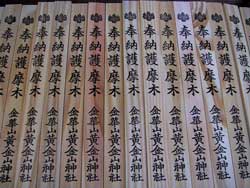 奉納護摩木 金華山黄金山神社
奉納護摩木 金華山黄金山神社
奉納護摩木 金華山黄金山神社
奉納護摩木 金華山黄金山神社
奉納護摩木 金華山黄金山神社
奉納護摩木 金華山黄金山神社
奉納護摩木 金華山黄金山神社
奉納護摩木 金華山黄金山神社
奉納護摩木 金華山黄金山神社
奉納護摩木 金華山黄金山神社
奉納護摩木 金華山黄金山神社
奉納護摩木 金華山黄金山神社
奉納護摩木 金華山黄金山神社